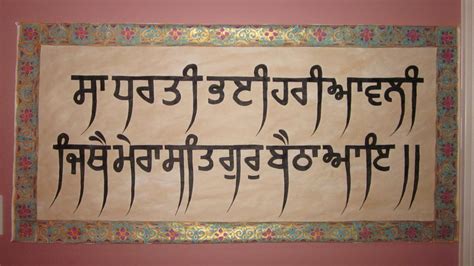 ਸਾ ਧਰਤੀ ਭਈ ਹਰੀਆਵਲੀ
ਜਿਥੈ ਮੇਰਾ ਸਤਿਗੁਰੁ ਬੈਠਾ ਆਇ ॥